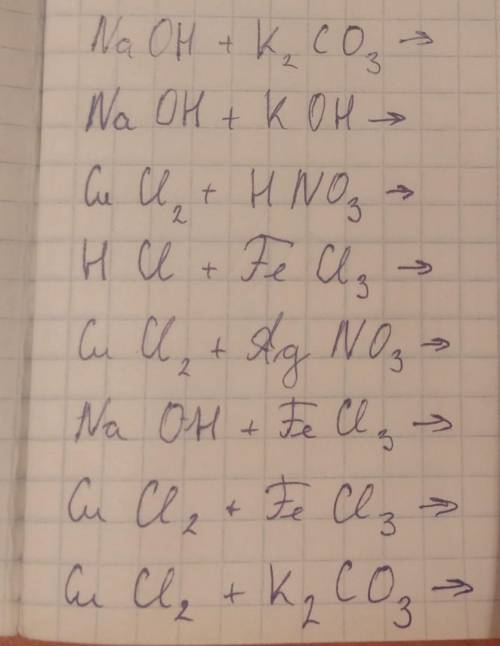 NaOH + K₂CO₃ →
NaOH + KOH →
CuCl₂ + HNO₃ →
HCl + FeCl₃ →
CuCl₂ + AgNO₃ →
NaOH + FeCl₃ →
CuCl₂ + FeCl₃ →
CuCl₂ + K₂CO₃ →